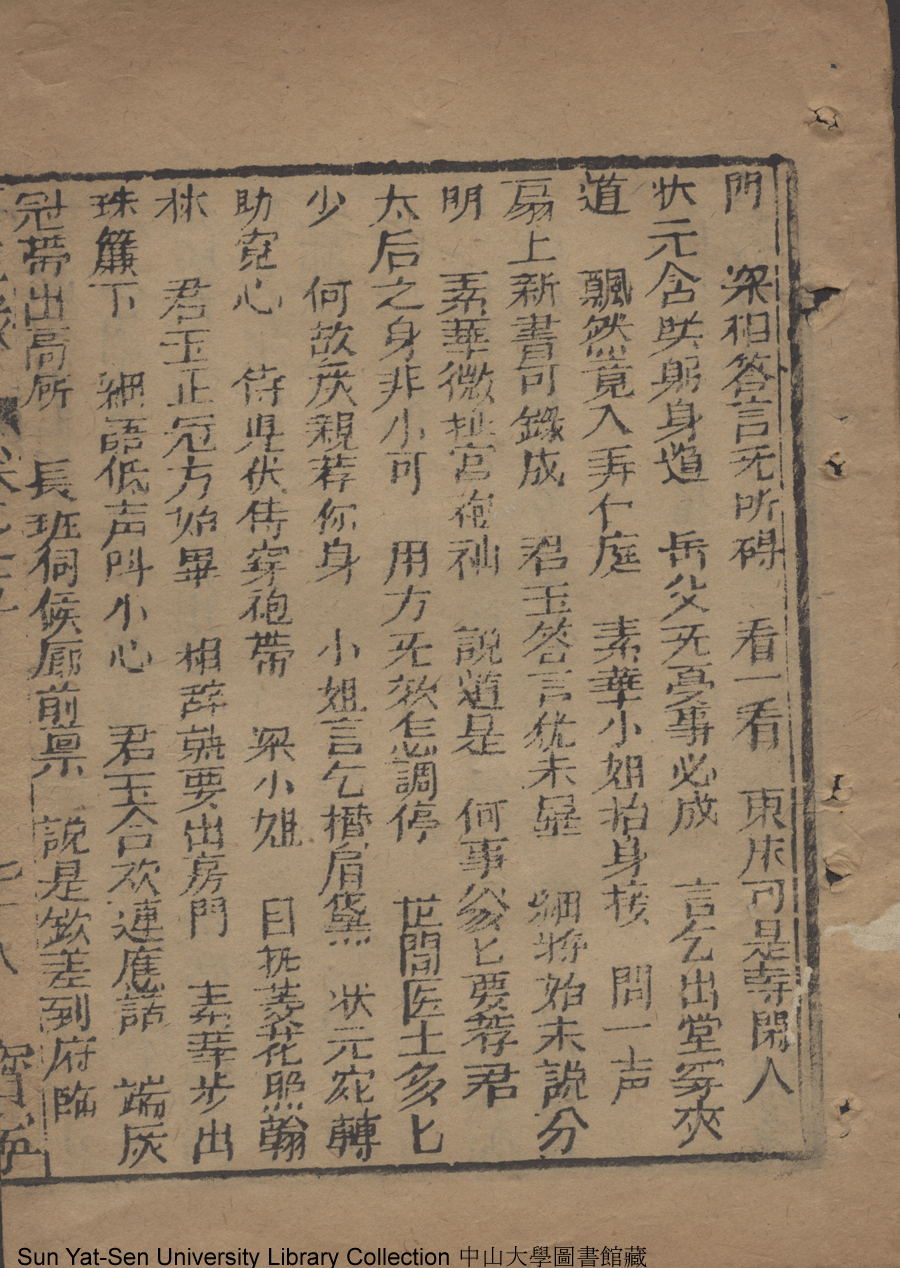 門 梁相答言无所碍 看一看 東床可是等閑人
状元含笑躬身道 岳父无憂事必成 言乞出堂穿夾
道 飄然竟入弄仁庭 素華小姐抬身接 問一声
扇上新書可錄成 君玉答言犹未显 細將始末說分
明 素華微扯宫袍袖 說道是 何事爹匕要荐君
太后之身非小可 用方无效怎調停 世間医士多匕
少 何故灰親荐你身 小姐言乞槽肩黛 状元宛轉
助寛心 侍児伏侍穿袍帶 梁小姐 目抚菱花照翰
林 君玉正冠方始畢 相辞就要出房門 素華步出
珠簾下 細語低声叫小心 君玉合欢連應諾 端灰
冠帶出高所 長班伺候廊前禀 說是欽差到府臨
Sun Yat-Sen University Library Collection 中山大學圖書館藏